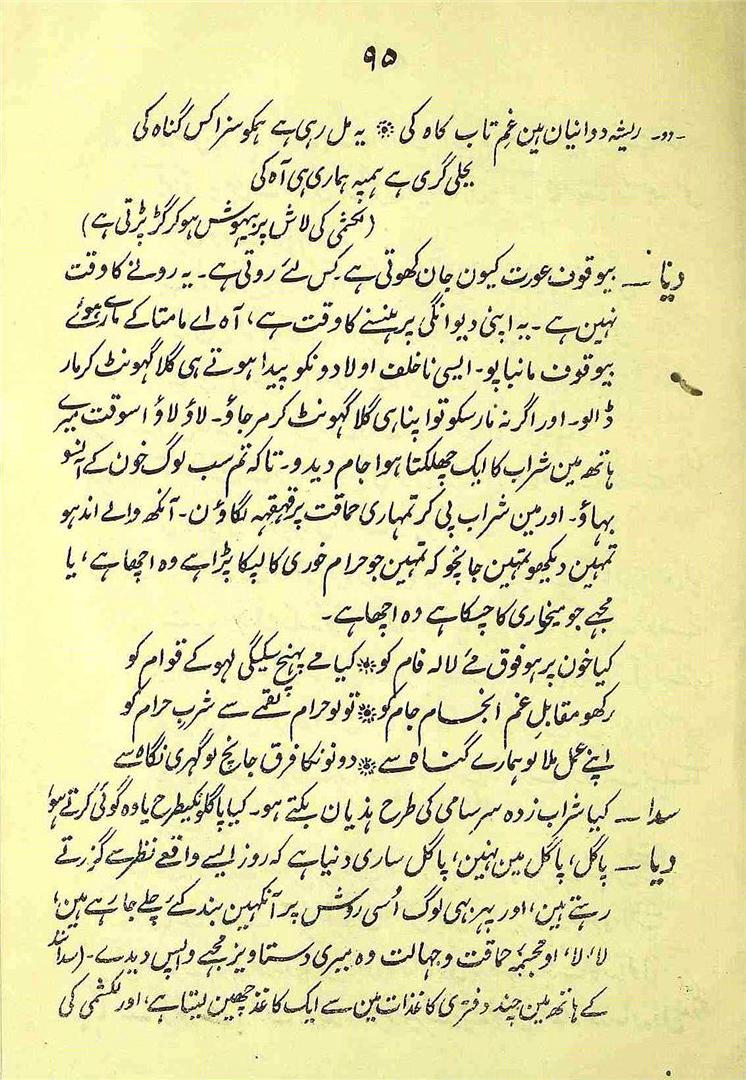 ۹۵
-دو- ریشہ دوانیان ہین غمِ تاب کاہ کی ٭ یہ مل رہی ہے ہمکو سزا کس گناہ کی
بجلی گری ہے ہمپہ ہماری ہی آہ کی
(لکشمی کی لاش پر بیہوش ہو کر گر پڑتی ہے)
دیا ـ بیوقوف عورت کیون جان کھوتی ہے کس لئے روتی ہے۔ یہ رونے کا وقت
نہین ہے۔ یہ اپنی دیوانگی پر ہنسنے کا وقت ہے، آہ اے مامتا کے مارے ہوئے
بیوقوف مانباپو۔ ایسی ناخلف اولاد ونکو پیدا ہوتے ہی گلا گہونٹ کر مار
ڈالو۔ اور اگر نہ مار سکو تو اپنا ہی گلا گہونٹ کر مر جاؤ۔ لاؤ لاؤ اسوقت میرے
ہاتھ مین شراب کا ایک چھلکتا ہوا جام دیدو۔ تاکہ تم سب لوگ خون کے آنسو
بہاؤ۔ اور مین شراب پی کر تمہاری حماقت پر قہقہہ لگاؤن۔ آنکھ والے اندہو
تمہین دیکھو تمہین جانچو کہ تمہین جو حرام خوری کا لپکا پڑا ہے وہ اچھا ہے، یا
مجہے جو میخاری کا چسکا ہے وہ اچھا ہے۔
کیا خون پر ہو فوق مئے لالہ فام کو ٭ کیا مے پہنچ سکیگی لہو کے قوام کو
رکھو مقابلِ غم انجام جام کو ٭ تولو حرام لقمے سے شربِ حرام کو
اپنے عمل ملا لو ہمارے گناہ سے ٭ دونونکا فرق جانچ لو گہری نگاہ سے
سدا ـ کیا شراب زدہ سرسامی کی طرح ہذیان بکتے ہو۔ کیا پاگلونکیطرح یاوہ گوئی کرتے ہو
دیا ـ پاگل، پاگل مین نہین، پاگل ساری دنیا ہے کہ روز ایسے واقعے نظر سے گزرتے
رہتے ہین، اور پہر بہی لوگ اُسی روش پر آنکہین بند کئے چلے جا رہے ہین،
لا، لا، او مجسمۂ حماقت و جہالت وہ میری دستاویز مجہے واپس دیدے۔ (سدانند
کے ہاتھ مین چند دفتری کاغذات مین سے ایک کاغذ چھین لیتا ہے، اور لکشمی کی